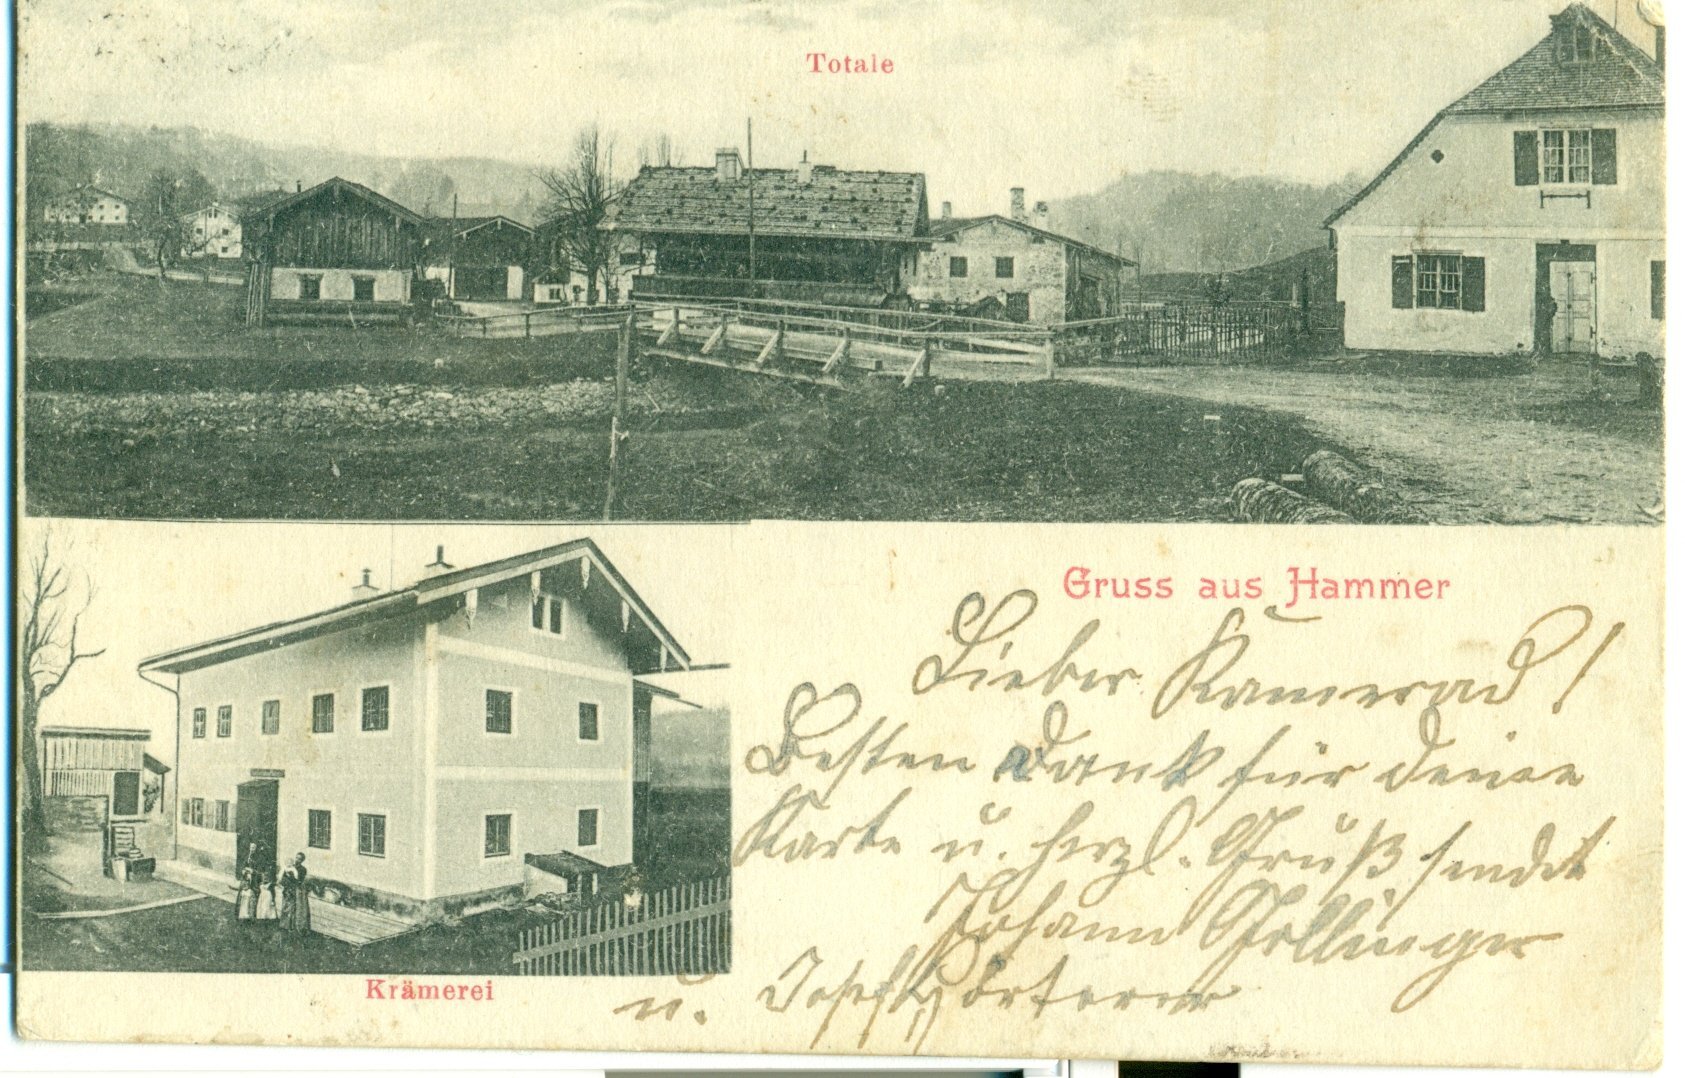 Totale
Gruss aus Hammer
Lieber Kamerad!
Besten Dank für deine
Karte u. herzl. Gruß sendet
Johann
u. Josef
Krämerei